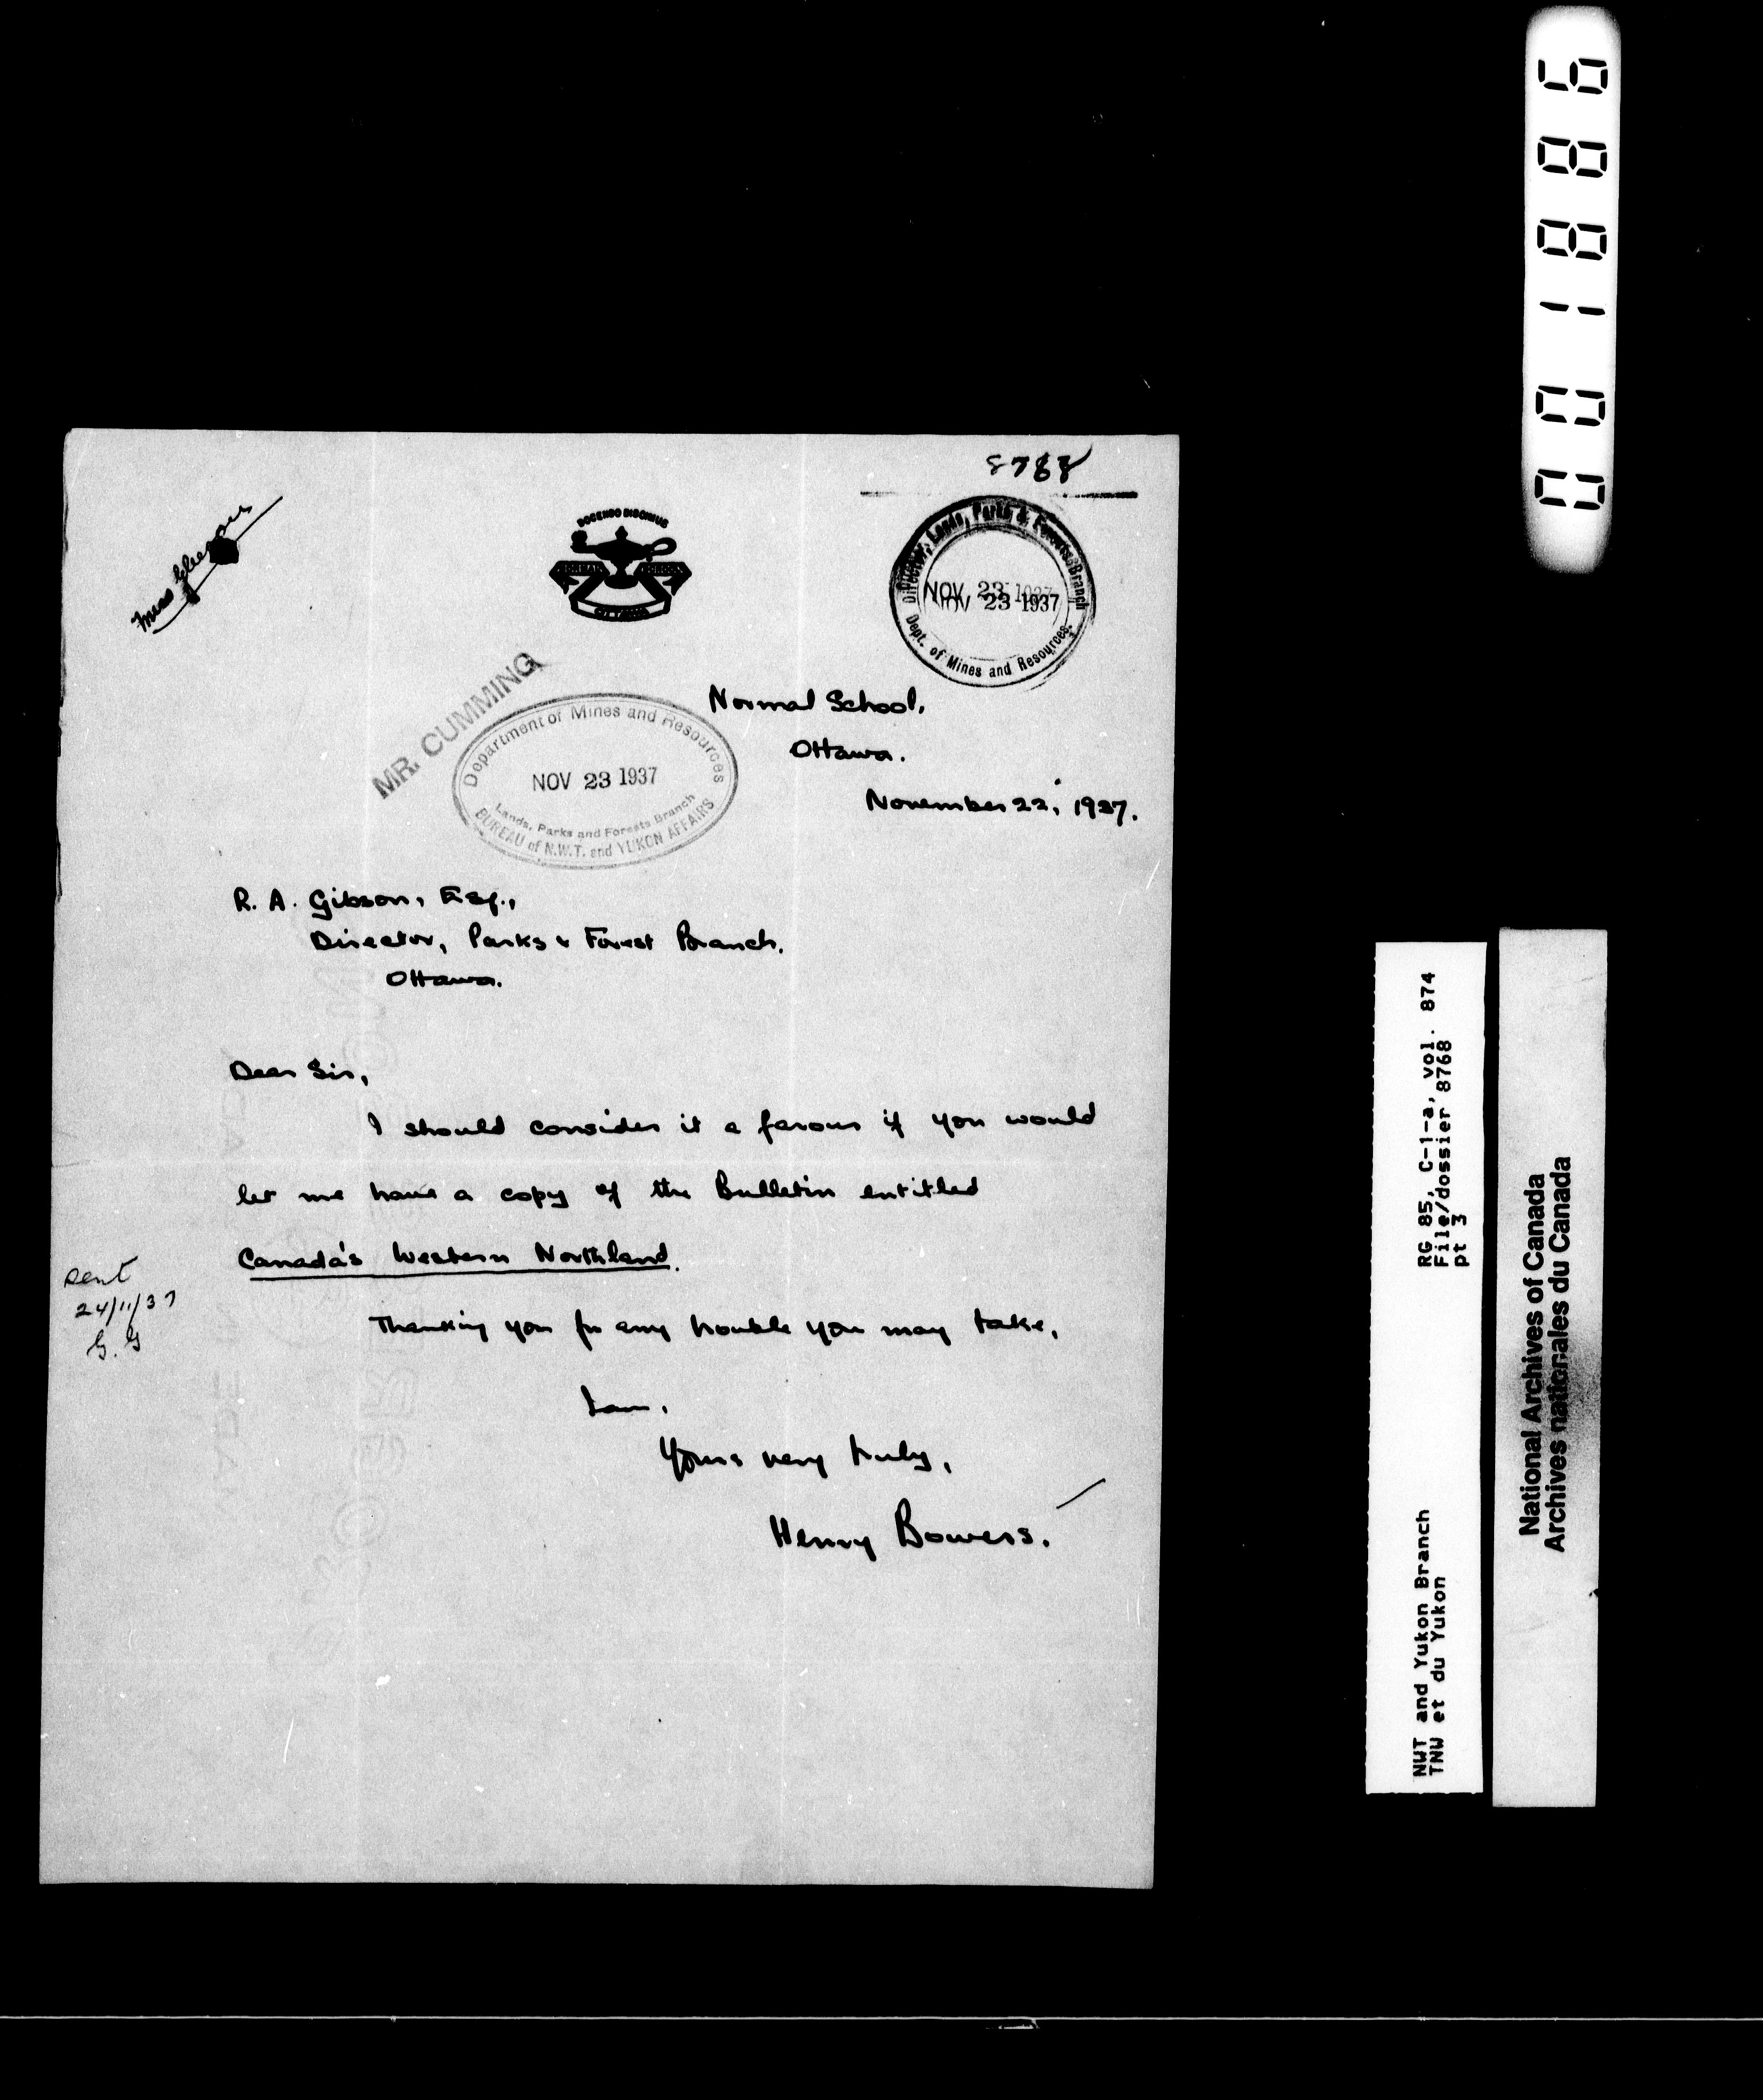 8768
Miss
DOCENDO DISCIMUS
NORMAL SCHOOL
OTTAWA
Director, Lands, Parks & Forests Branch
NOV 23 1937
NOV 23 1937
Dept. of Mines and Resources
MR. CUMMING
Department of Mines and Resources
NOV 23 1937
Lands, Parks and Forests Branch
BUREAU of N.W.T. and YUKON AFFAIRS
Normal School,
Ottawa.
November 22, 1937.
R. A. Gibson, Esq.,
Director, Parks & Forest Branch.
Ottawa.
Dear Sir,
I should consider it a favour if you would
let me have a copy of the Bulletin entitled
Canada's Western Northland.
sent
24/11/37
G. G
Thanking you for any trouble you may take,
I am,
Yours very truly,
Henry Bowers.
001886
RG 85, C-1-a, vol. 874
File/dossier 8768
pt 3
NWT and Yukon Branch
TNW et du Yukon
National Archives of Canada
Archives nationales du Canada